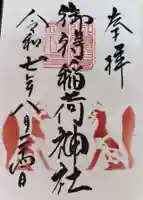 奉拝
御待稲荷神社
令和七年八月二十四日